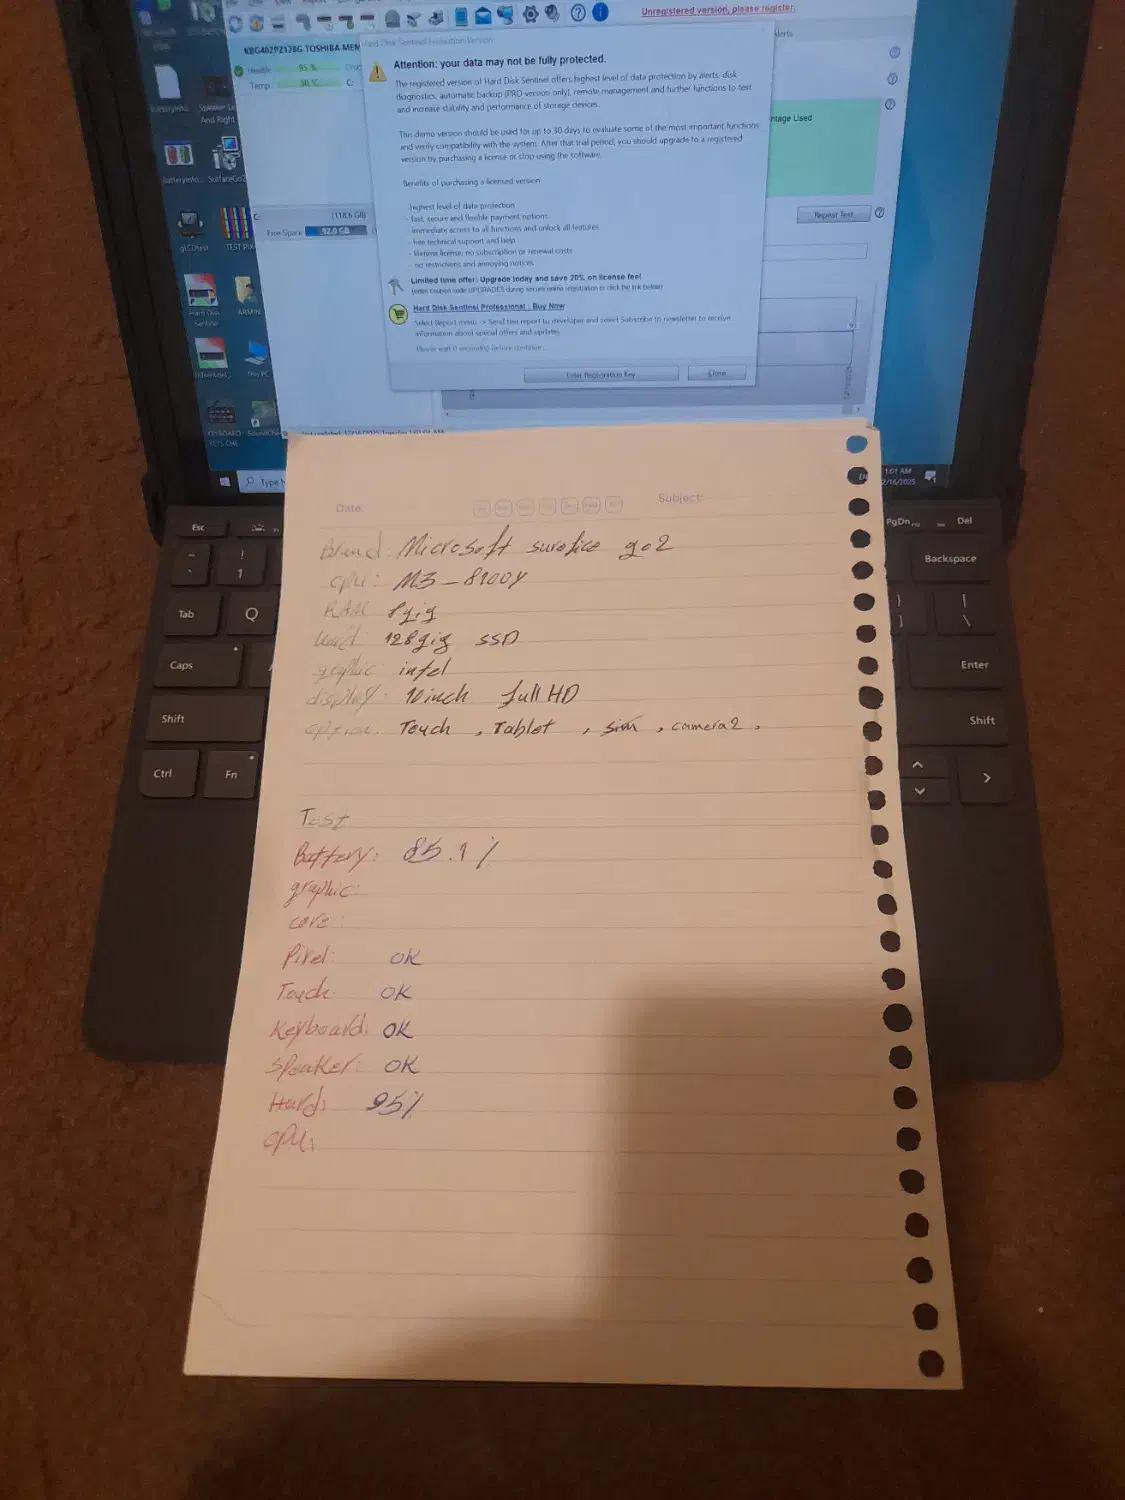 Unregistered version, please register.
KBG40ZPZ128G TOSHIBA MEM
Hard Disk Sentinel Evaluation Version
Alerts
Health: 95 %
Temp.: 30 °C C:
Attention: your data may not be fully protected.
The registered version of Hard Disk Sentinel offers highest level of data protection by alerts, disk
diagnostics, automatic backup (PRO version only), remote management and further functions to test
and increase stability and performance of storage devices.
This demo version should be used for up to 30 days to evaluate some of the most important functions
and verify compatibility with the system. After that trial period, you should upgrade to a registered
version by purchasing a license or stop using the software.
Benefits of purchasing a licensed version
- highest level of data protection
- fast, secure and flexible payment options
- immediate access to all functions and unlock all features
- free technical support and help
- lifetime license, no subscription or renewal costs
- no restrictions and annoying notices
Limited time offer: Upgrade today and save 20% on license fee!
(enter coupon code UPGRADES during secure online registration or click the link below)
Hard Disk Sentinel Professional - Buy Now
Select Report menu -> Send test report to developer and select Subscribe to newsletter to receive
information about special offers and updates
Please wait 0 second(s) before continue...
Enter Registration Key
Close
ntage Used
Repeat Test
C:
(118.6 GB)
Free Space 92.0 GB
And Right
BatteryInfo...
SurfaceGo2
TEST PIX
Hard Disk
Sentinel
ARMIN
This PC
KEYBOARD
Type h
1:01 AM
2/16/2025
Esc
PgDn
Del
Backspace
~
`
!
1
Tab
Q
}
]
|
\
Caps
Enter
Shift
Shift
Ctrl
Fn
Date:
Subject:
Brand: Microsoft surafice go2
cpu: M3-8100Y
RAM 8gig
hard: 128gig SSD
graphic: intel
display: 10inch full HD
option: Touch , Tablet , sim , camera2 ,
Test
Battery: 85.1%
graphic:
core:
Pixel: OK
Touch: OK
Keyboard: OK
Speaker: OK
Hard: 95%
CPU: